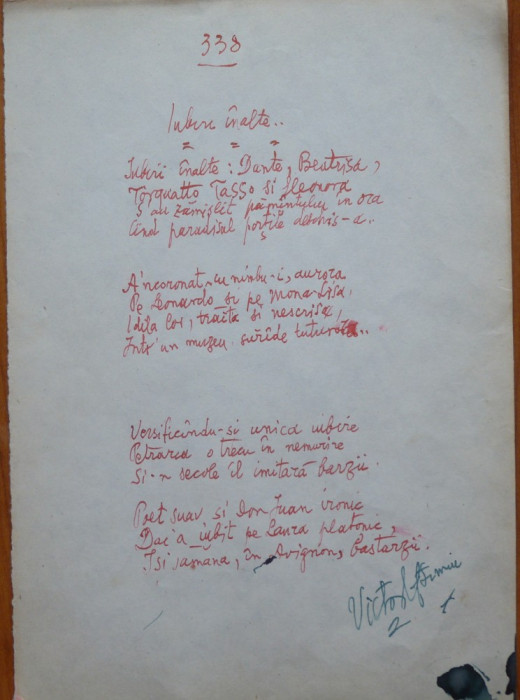 338
Iubiri înalte..
Iubiri înalte: Dante, Beatrisa,
Torquatto Tasso si Eleonora
S'au zămislit pămîntului în ora
Cînd paradisul porțile deschis-a.
A'ncoronat cu nimbu-i, aurora
Pe Leonardo si pe Mona-Lisa,
Idila lor, traita si nescrisa,
Intr'un muzeu surîde tuturora..
Versificîndu-si unica iubire
Petrarca o trecu în nemurire
Si-n secole îl imitară barzii.
Poet suav si Don Juan ironic
Dac'a iubit pe Laura platonic,
Isi samana, în Avignon, bastarzii.
Victor Eftimiu